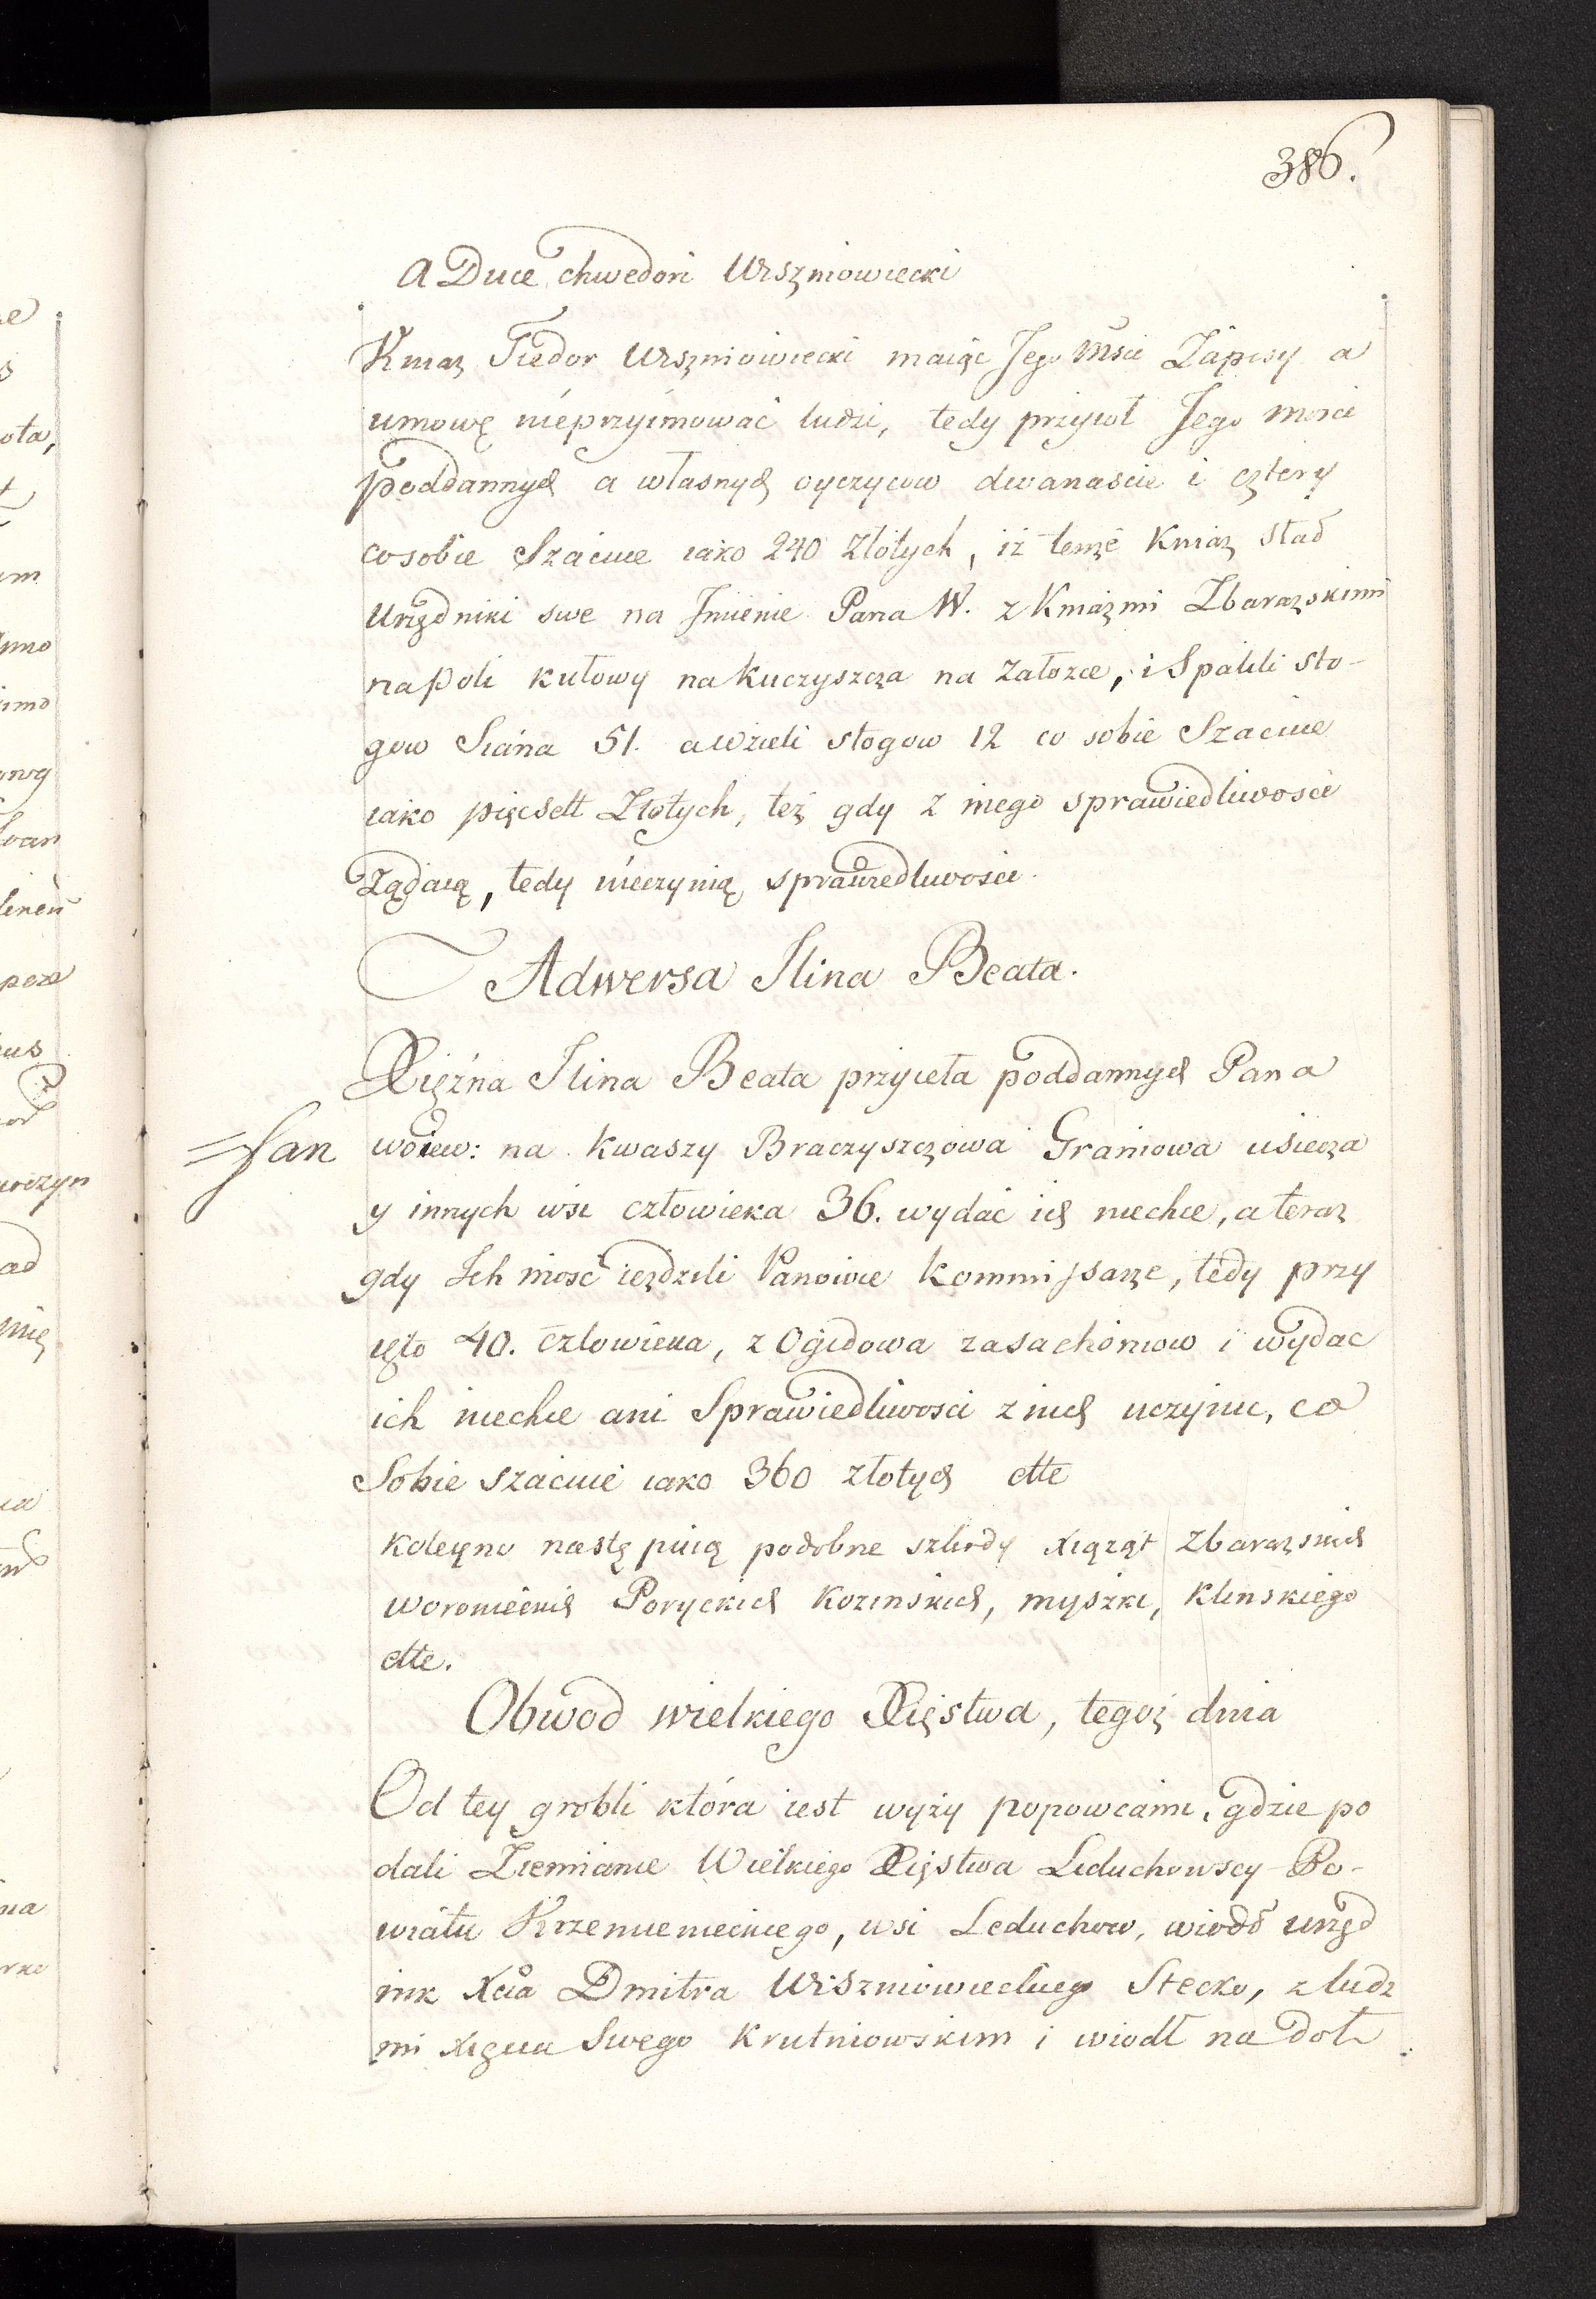 386.
A Duce chwedori Wiszniowiecki
Kniaz Fiedor Wiszniowiecki maiąc Jego Mści Zapisy a
umowę nieprzyimować ludzi, tedy przyioł Jego mosci
poddannych a własnych oyczycow dwanascie i cztery
co sobie Szacuie iako 240 Złotych, iż tenże Kniaz słał
Urzędniki swe na Imienie Pana W. z Kniazmi Zbarazskimi
na poli kutowy na kuczyszcza na załozce, i Spalili sto-
gow Siana 51. a wzieli stogow 12 co sobie Szacuie
iako pięcsett Złotych, też gdy z niego sprawiedliwości
Ządaią, tedy nieczynią sprawiedliwości.
Adwersa Ilina Beata.
Xięźna Ilina Beata przyieła poddannych Pana
=San woiew: na kwaszy Braczyszczowa Graniowa usiecza
y innych wsi człowieka 36. wydać ich niechce, a teraz
gdy Ich mosć iezdzili Panowie Kommissarze, tedy przy
ięło 40. człowieka, z Ogidowa zasachoniow i wydac
ich niechce ani Sprawiedliwosci z nich uczynic, co
Sobie szacuie iako 360 złotych ette
koleyno nastę puią podobne szkody xiąząt Zbarazskich
woronieckich Poryckich Kozinskich, myszki, Klinskiego
ette.
Obwod wielkiego Xięstwa, tegoż dnia
Od tey grobli która iest wyży popowcami, gdzie po
dali Ziemianie Wielkiego Xięstwa Leduchowscy Po-
wiatu Krzemienieckiego, wsi Leduchow, wiodł urzęd
nik Xcia Dmitra Wiszniowieckiego Stecko, z ludz
mi xięcia Swego Krutniowskim i wiodł na doł